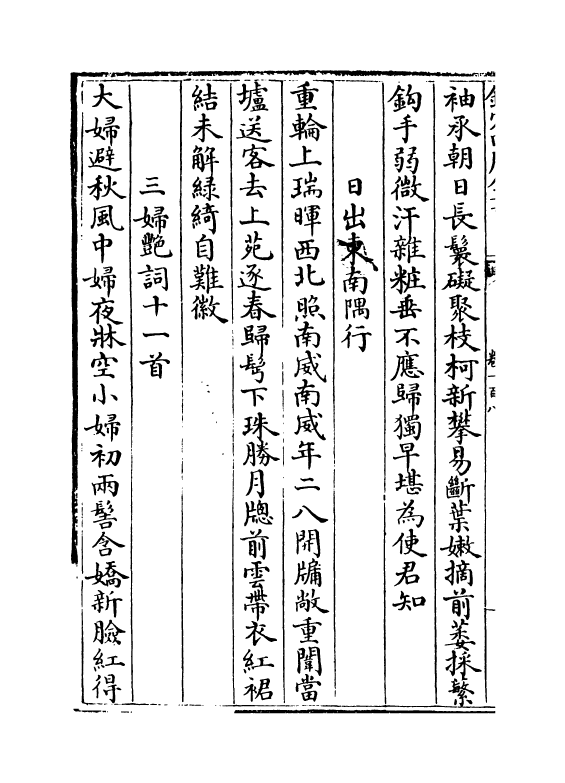 袖承朝日長鬟礙聚枝柯新攀易斷葉嫩摘前萎採繁
鈎手弱微汗雜粧垂不應歸獨早堪為使君知
日出東南隅行
重輪上瑞暉西北照南威南威年二八開牖敞重闈當
壚送客去上苑逐春歸髩下珠勝月牕前雲帶衣紅裙
結未解緑綺自難徽
三婦艷詞十一首
大婦避秋風中婦夜牀空小婦初兩髻含嬌新臉紅得